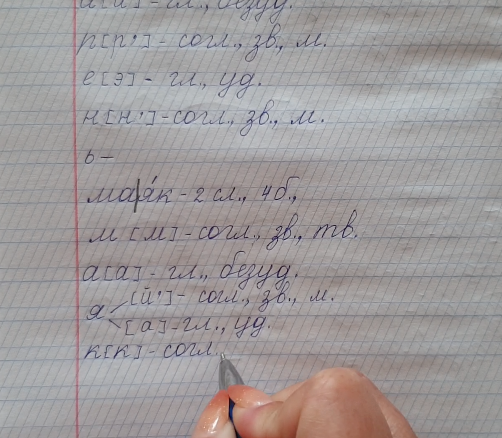 а[а] - гл., безуд.
р[р'] - согл., зв., м.
е[э] - гл., уд.
н[н'] - согл., зв., м.
ь —
ма|я́к - 2 сл., 4б.,
м [м] - согл., зв., тв.
а[а] - гл., безуд.
[й'] - согл., зв., м.
я
[а] - гл., уд.
к[к] - согл.,